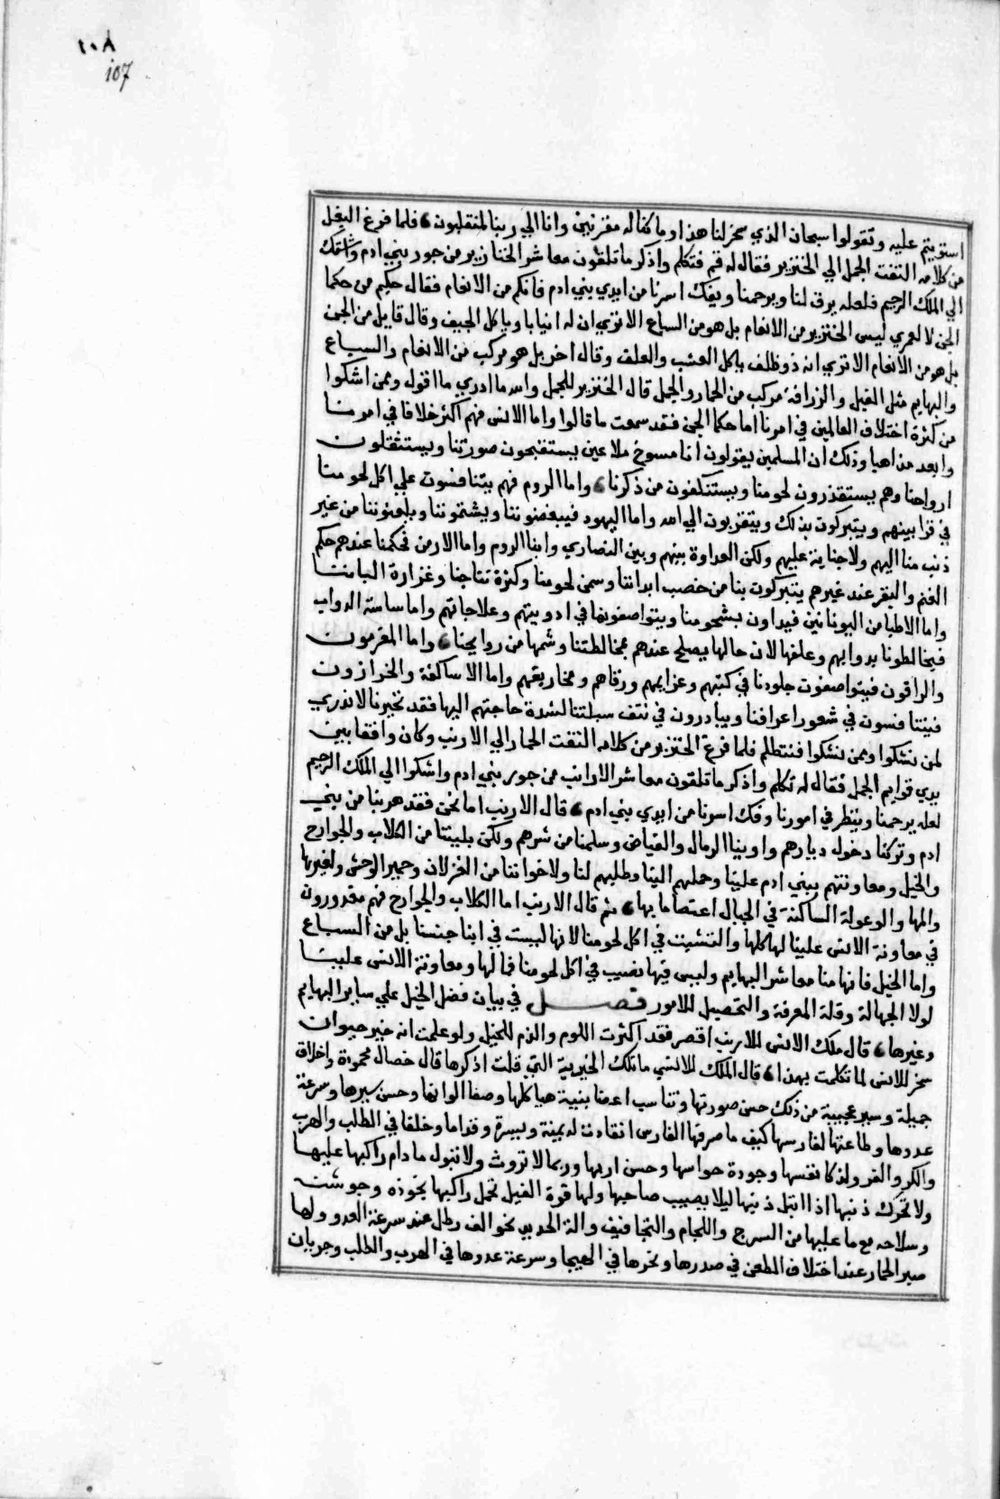 ١٠٨
107
استويتم عليه وتقولوا سبحان الذي سخر لنا هذا وما كنا له مقرنين وانا الي ربنا لمنقلبون فلما فرغ البغل
من كلامه التفت الجمل الي الخنزير فقال له قم فتكلم واذكر ما تلقون معاشر الخنازير من جور بني ادم واشتك
الي الملك الرحيم فلعله يرق لنا ويرحمنا ويفك اسرنا من ايدي بني ادم فانكم من الانعام فقال حكيم من حكما
الجن لا لعمري ليس الخنزير من الانعام بل هو من السباع الا تري ان له انيابا وياكل الجيف وقال قايل من الجن
بل هو من الانعام الا تري انه ذو ظلف ياكل العشب والعلف وقال اخر بل هو مركب من الانعام والسباع
والبهايم مثل الفيل والزرافة مركب من الحمار والجمل قال الخنزير للجمل والله ما ادري ما اقول وممن اشكوا
من كثرة اختلاف العالمين في امرنا اما حكما الجن فقد سمعت ما قالوا واما الانس فهم اكثر خلافا في امرنا
وابعد مذاهبا وذلك ان المسلمين يقولون انا مسوخ ملاعين يستقبحون صورتنا ويستثقلون
ارواحنا وهم يستقذرون لحومنا ويستنكفون من ذكرنا واما الروم فهم يتنافسون علي اكل لحومنا
في قرابينهم ويتبركون بذلك ويتقربون الي الله واما اليهود فيبغضوننا ويشتموننا ويلعنوننا من غير
ذنب منا اليهم ولا جناية عليهم ولكن العداوة بينهم وبين النصاري وابنا الروم واما الارمن فحكمنا عندهم حكم
الغنم والبقر عند غيرهم يتبركون بنا من خصب ابداننا وسمن لحومنا وكثرة نتاجنا وغزارة الباننا
واما الاطبا من اليونانيين فيتداوون بشحومنا ويتواصفونها في ادويتهم وعلاجاتهم واما ساسة الدواب
فيخالطونا بدوابهم وعلفها لان حالها يصلح عندهم بمخالطتنا وشمها من روايحنا واما المعزمون
والراقون فيتواصفون جلودنا في كتبهم وعزايمهم ورقاهم ومخاريقهم واما الاساكفة والخرازون
فيتنافسون في شعور اعرافنا ويبادرون في نتف سبلتنا لشدة حاجتهم اليها فقد تحيرنا لا ندري
لمن نشكوا وممن نشكوا فنتظلم فلما فرغ الخنزير من كلامه التفت الحمار الي الارنب وكان واقفا بين
يدي قوايم الجمل فقال له تكلم واذكر ما تلقون معاشر الارانب من جور بني ادم واشكوا الي الملك الرحيم
لعله يرحمنا وينظر في امورنا وفك اسرنا من ايدي بني ادم قال الارنب اما نحن فقد هربنا من بني
ادم وتركنا دخول ديارهم واوينا الرمال والغياض وسلمنا من شرهم ولكن بلينا من الكلاب والجوارح
والخيل ومعاونتهم لبني ادم علينا وحملهم الينا وطلبهم لنا ولاخواننا من الغزلان وحمير الوحش ولغيرها
والمها والوعولة الساكنة في الجبال اعتصاما بها ثم قال الارنب اما الكلاب والجوارح فهم معذورون
في معاونة الانس علينا لها كلها والتشبث في اكل لحومنا لانها ليست في ابنا جنسنا بل من السباع
واما الخيل فانها منا معاشر البهايم وليس فيها نصيب في اكل لحومنا فما لها ومعاونة الانس علينا
لولا الجهالة وقلة المعرفة والتحصيل للامور فصل في بيان فضل الخيل علي ساير البهايم
وغيرها قال ملك الانس للارنب اقصر فقد اكثرت اللوم والذم للخيل ولو علمت انه خير حيوان
سخر للانس لما تكلمت بهذا قال الملك للانسي ما تلك الخيرية التي قلت اذكرها قال خصال محمودة واخلاق
جميلة وسير عجيبة من ذلك حسن صورتها وتناسب اعضا بنية هياكلها وصفا الوانها وحسن سيرها وسرعة
عدوها وطاعتها لفارسها كيف ما صرفها الفارس انقادت له يمينة ويسرة وقداما وخلفا في الطلب والهرب
والكر والفر وذكا نفسها وجودة حواسها وحسن ادبها وربما لا تروث ولا تبول ما دام راكبها عليها
ولا تحرك ذنبها اذا ابتل ذنبها ليلا يصيب صاحبها ولها قوة الفيل تحمل راكبها بخوذه وجوشنه
وسلاحه مع ما عليها من السرج واللجام والتجافيف والة الحديد نحو الف رطل عند سرعة العدو ولها
صبر الحمار عند اختلاف الطعن في صدرها ونحرها في الهيجا وسرعة عدوها في الهرب والطلب وجريان